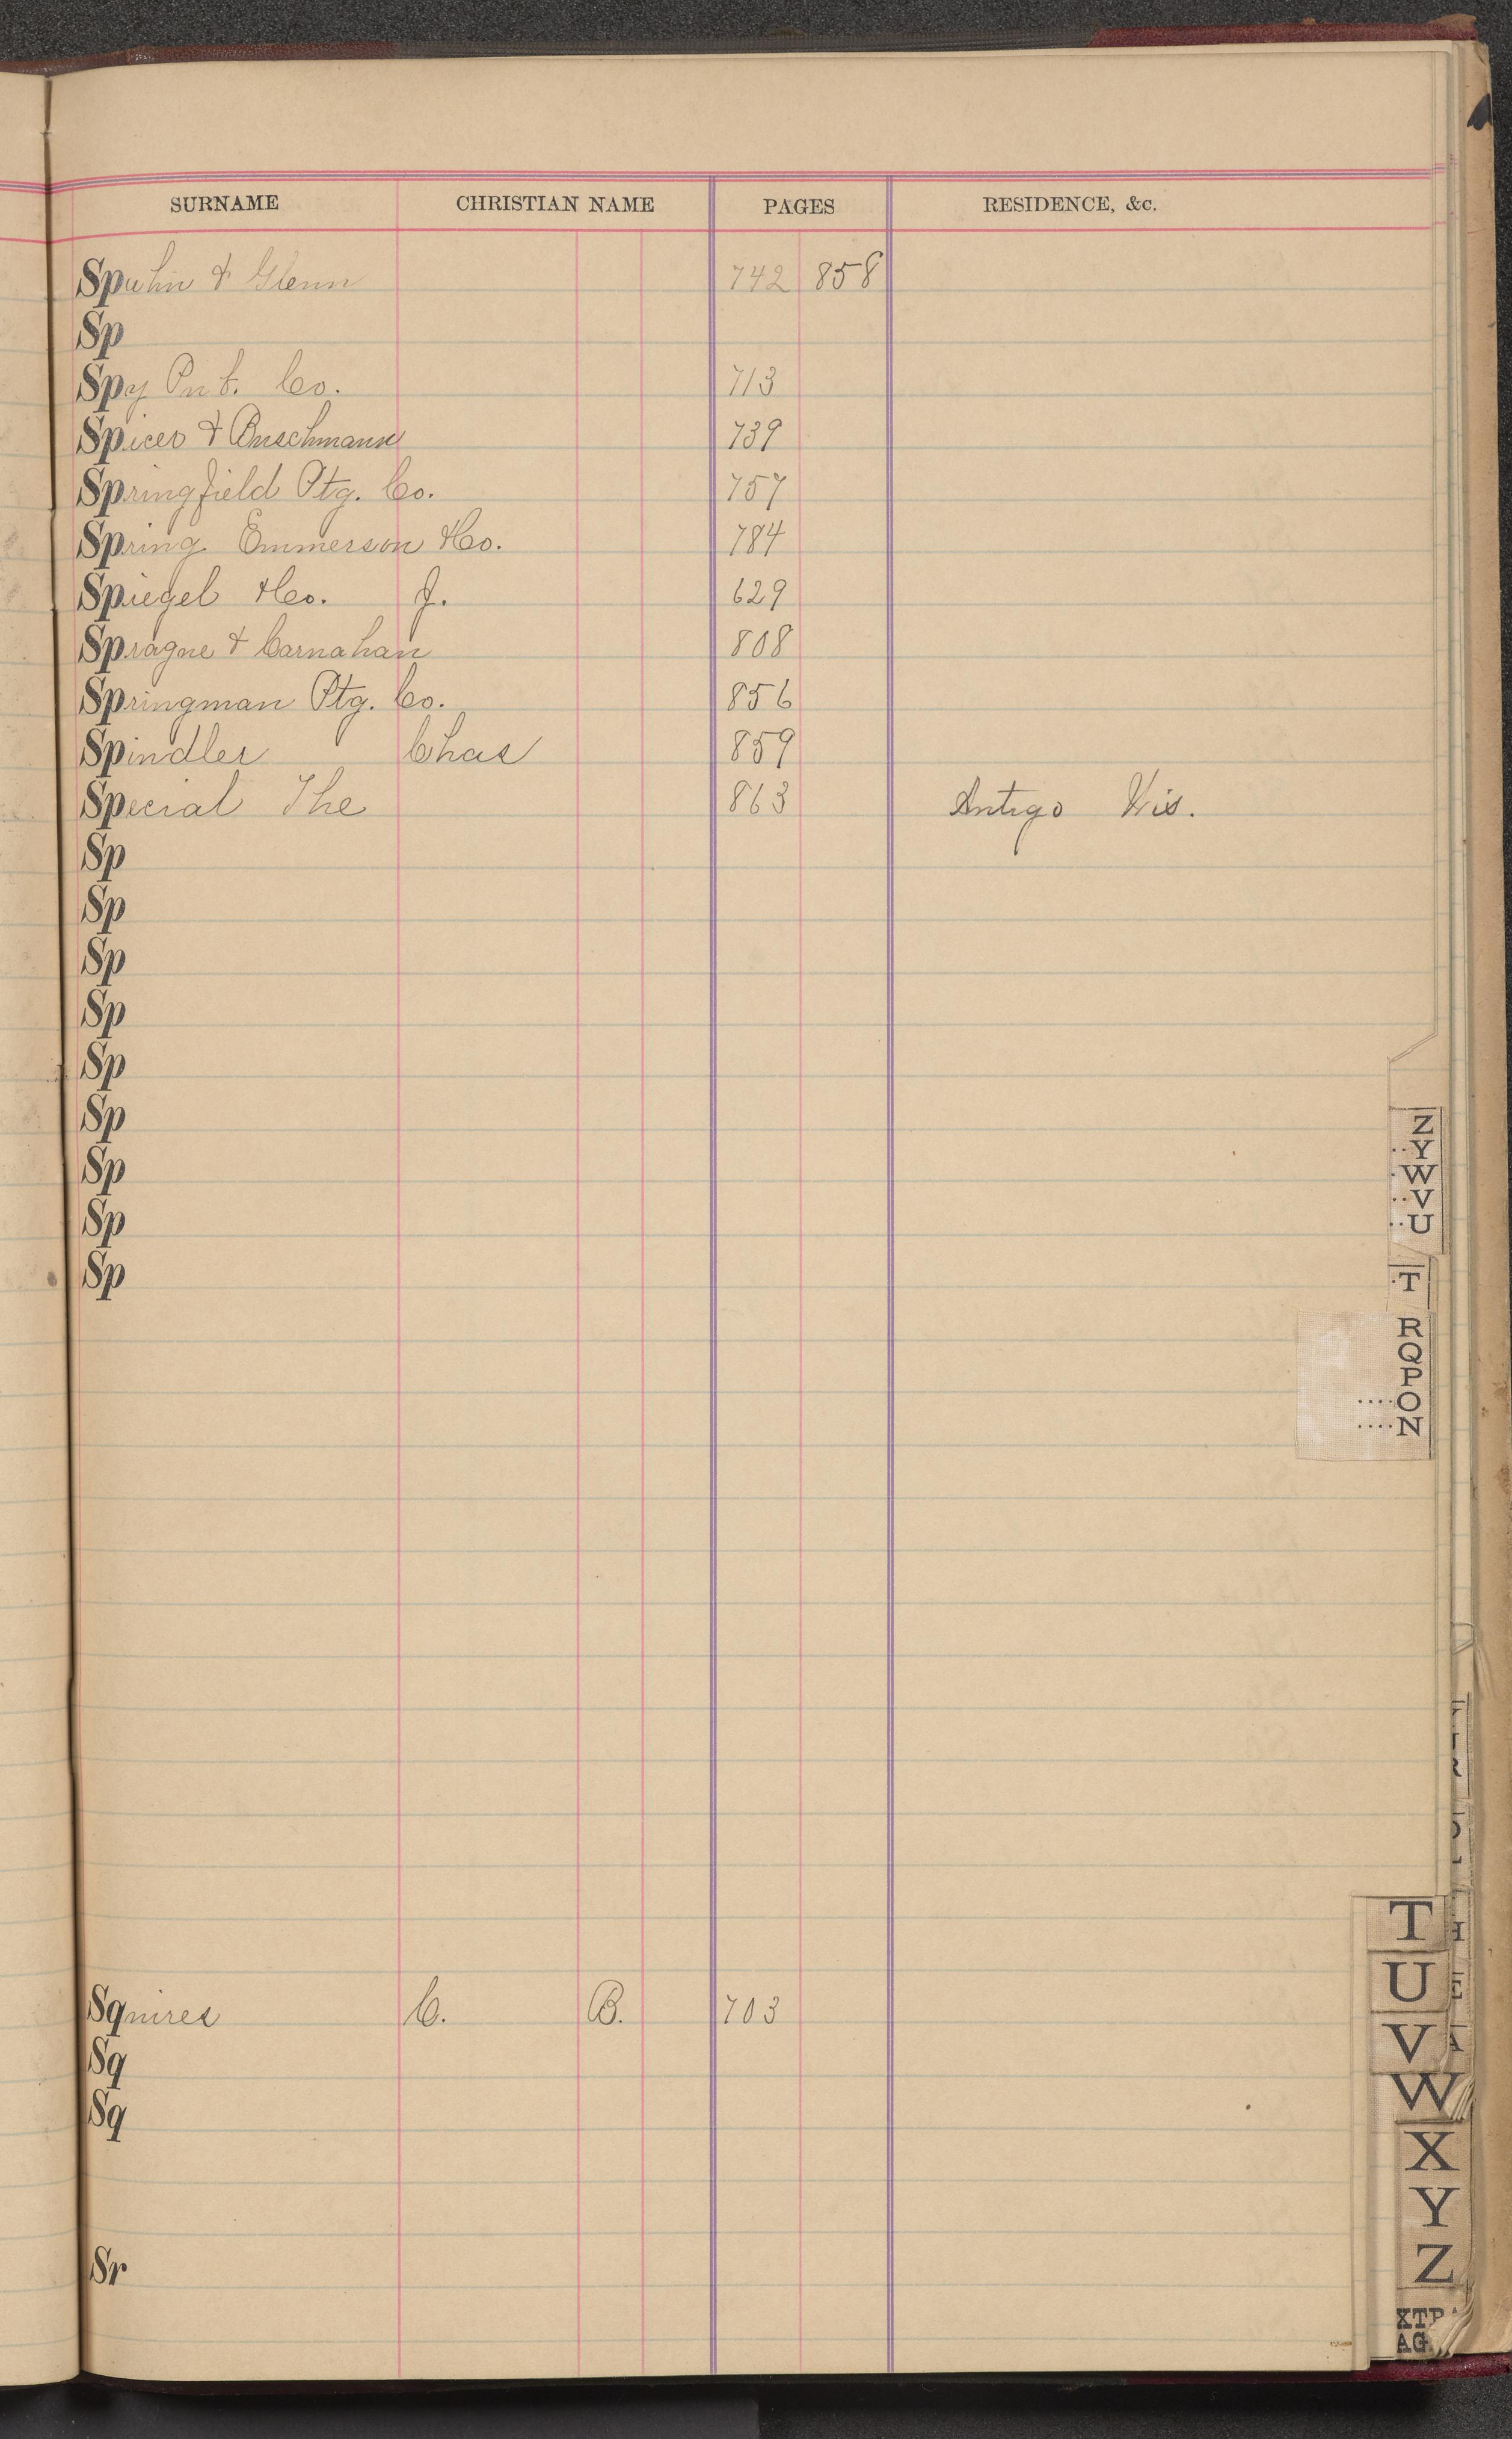 SURNAME CHRISTIAN NAME PAGES RESIDENCE, &c.
Spuhn & Glenn 742 858
Sp
Spy Pub. Co. 713
Spicer & Buschmann 739
Springfield Ptg. Co. 757
Spring Emmerson &Co. 784
Spiegel &Co. J. 629
Sprague & Carnahan 808
Springman Ptg. Co. 856
Spindler Chas 859
Special The 863 Antigo Wis.
Sp
Sp
Sp
Sp
Sp
Sp
Sp
Sp
Sp
Squires C. B. 703
Sq
Sq
Sr
Z
..Y
.W
..V
..U
.T
R
Q
P
....O
....N
T
U
V
W
X
Y
Z